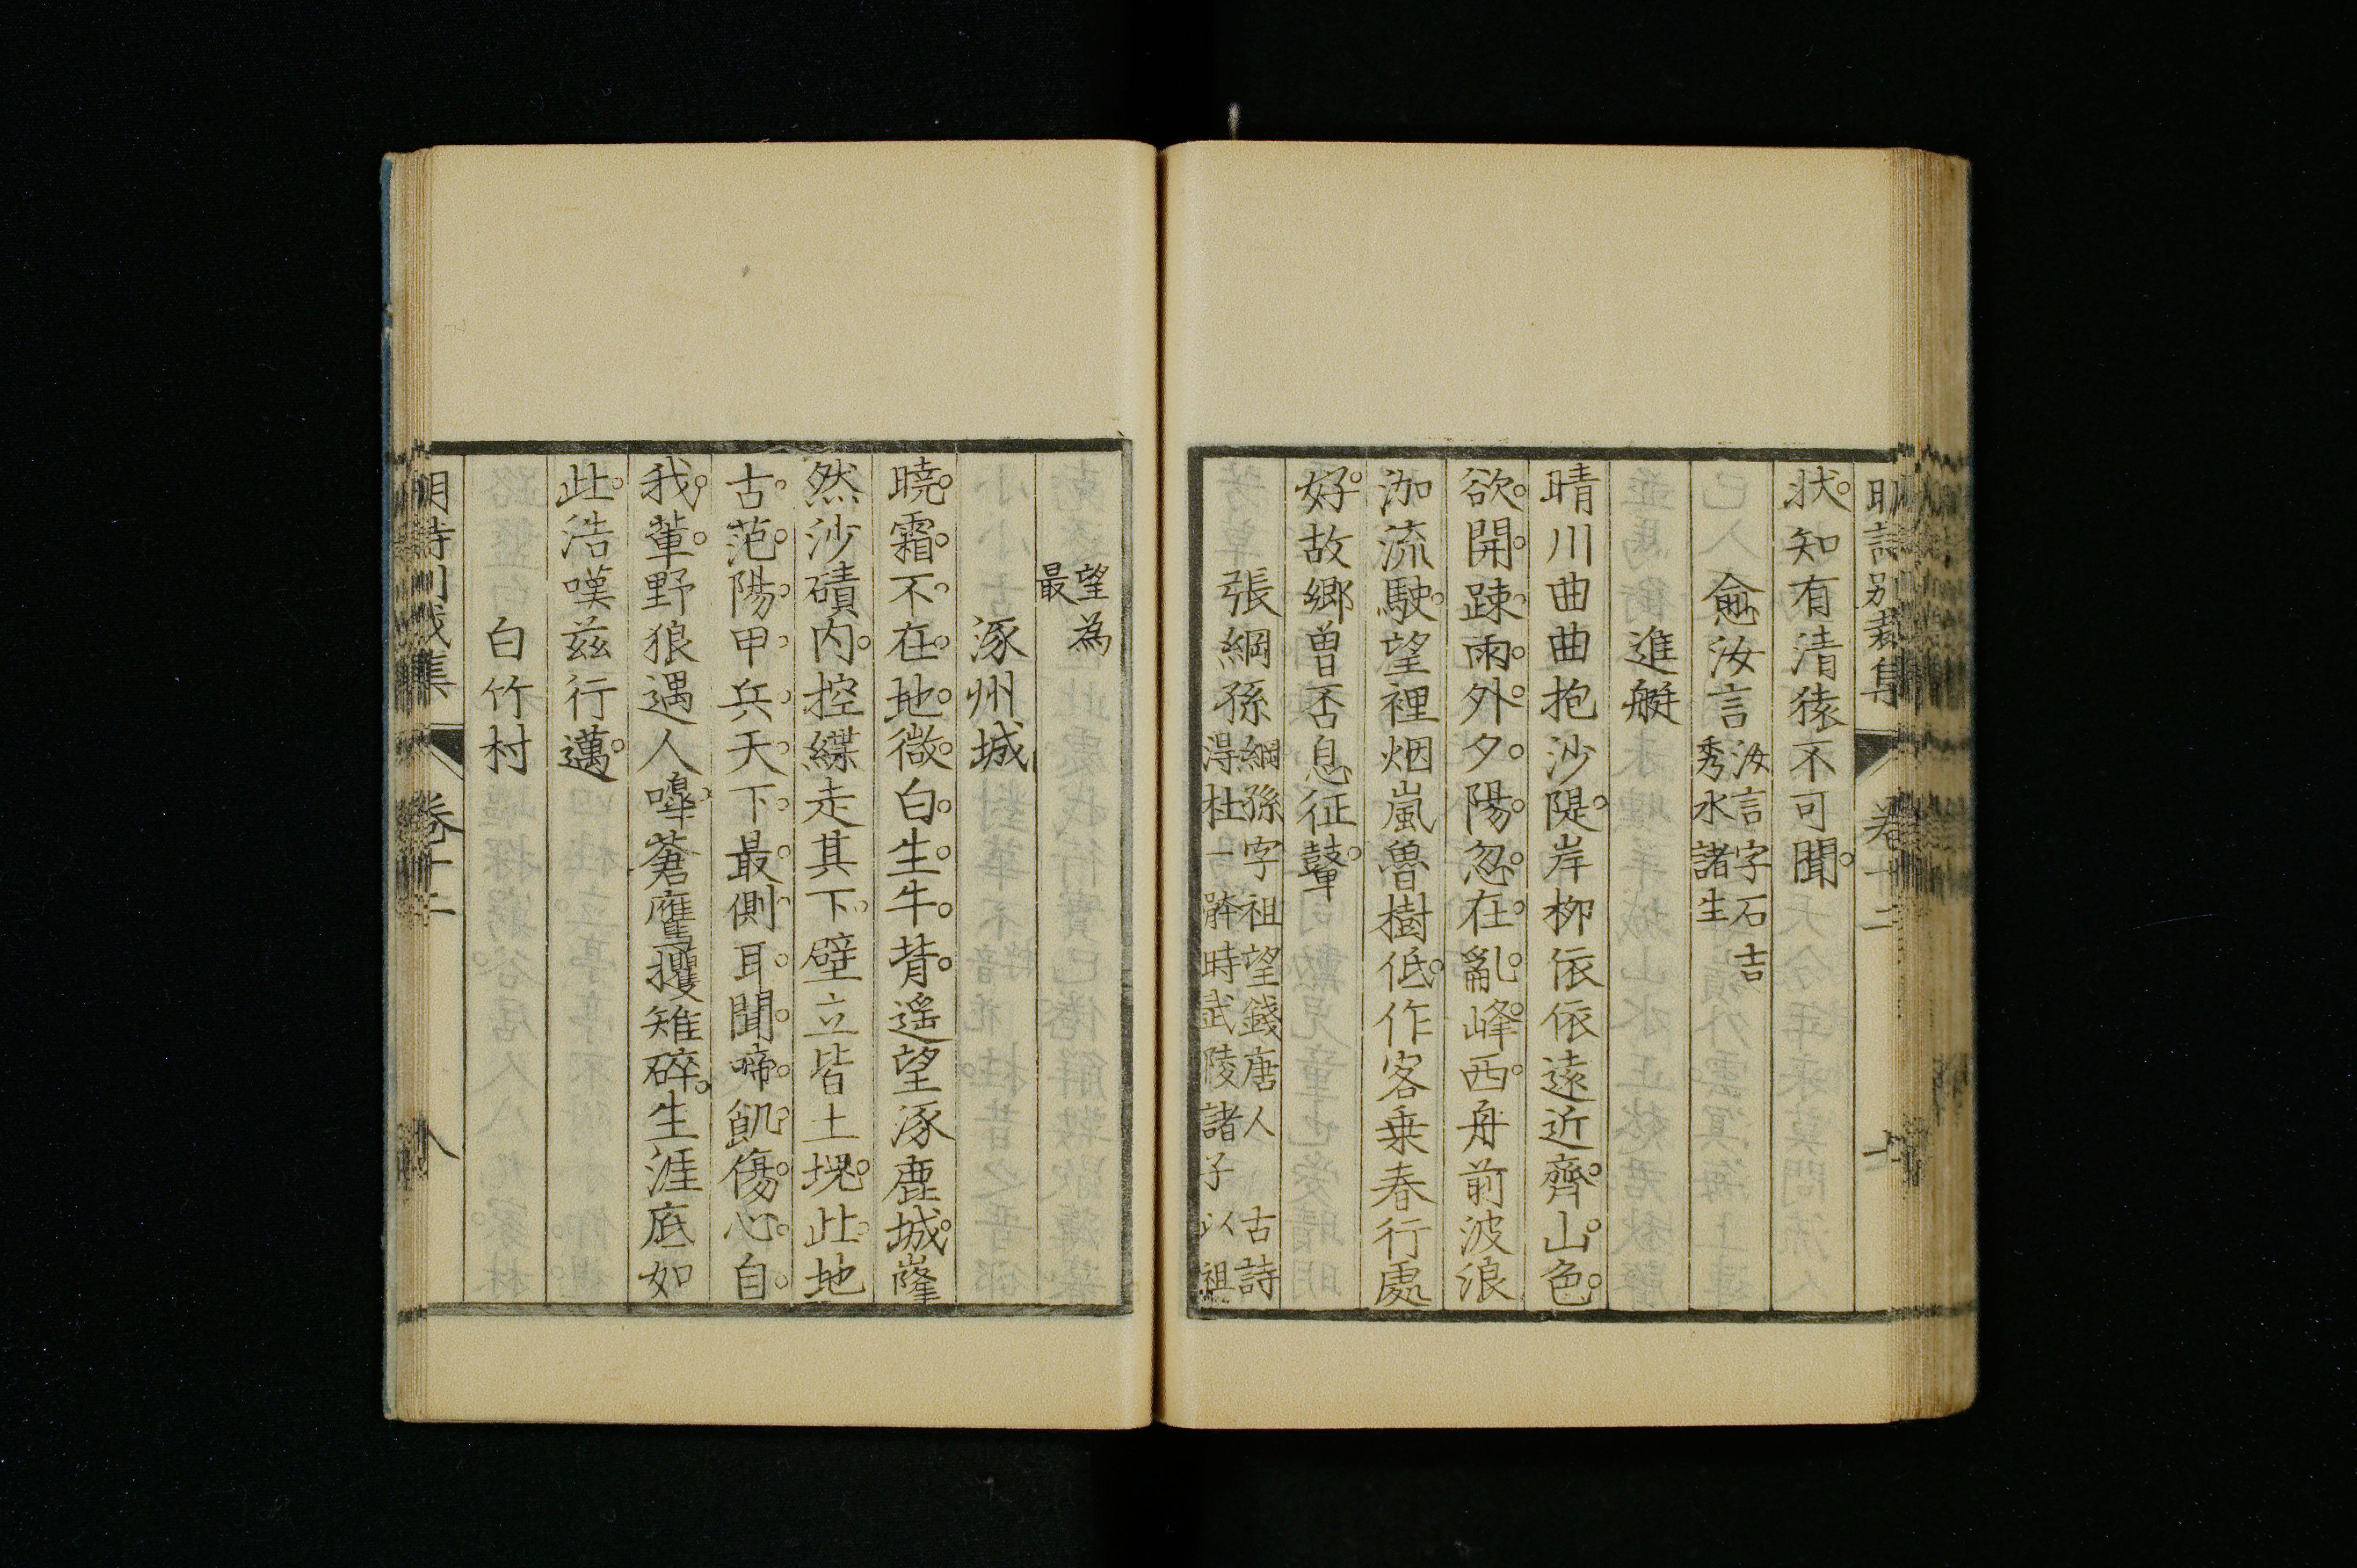 明詩別裁集 卷十二 七
狀知有清猿不可聞
俞汝言 汝言字石吉
秀水諸生
進艇
晴川曲曲抱沙隄岸柳依依遠近齊山色
欲開踈雨外夕陽忽在亂峰西舟前波浪
泇流駛望裡烟嵐魯樹低作客乗春行處
好故鄉曽否息征鼙
張綱孫 綱孫字祖望錢唐人 古詩
淂杜一體時武陵諸子以祖
望為
最
涿州城
曉霜不在地微白生牛背遥望涿鹿城嶐
然沙磧内控緤走其下壁立皆土塊此地
古范陽甲兵天下最側耳聞啼飢傷心自
我軰野狼遇人嘷蒼鷹攫雉碎生涯底如
此浩嘆兹行邁
白竹村
明詩別裁集 卷十二 八